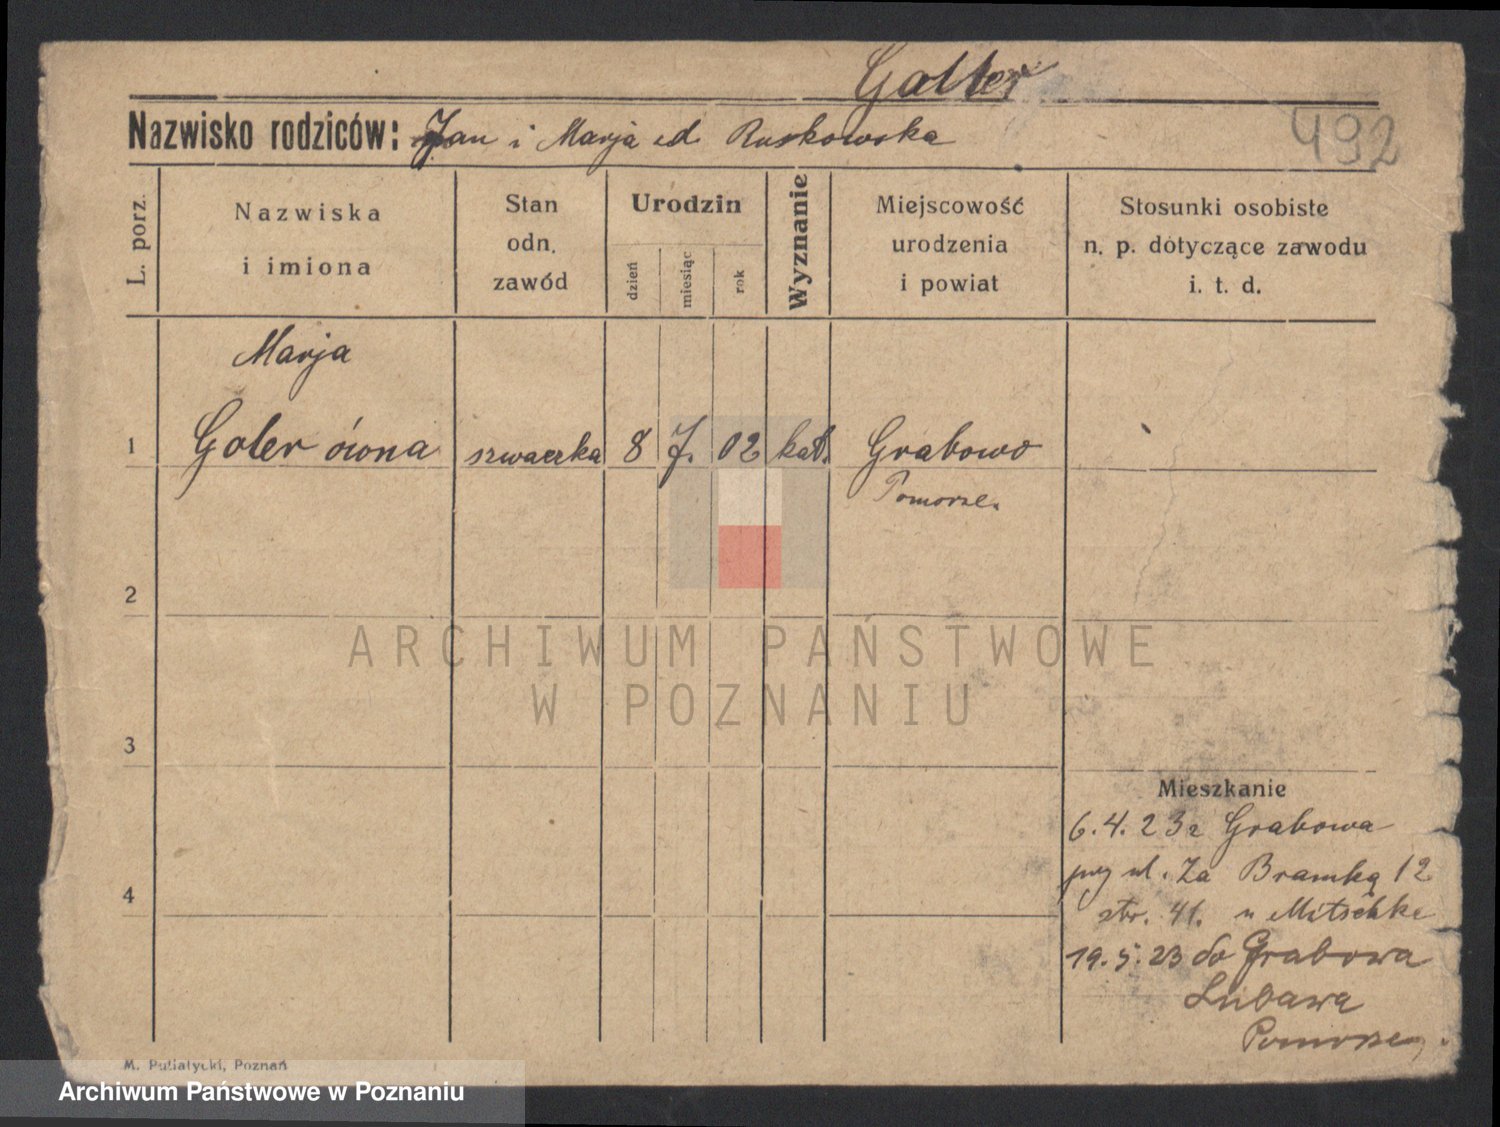 Golter
Nazwisko rodziców: Jan i Marja Ruskowska
492
L. porz.
Nazwiska
i imiona
Stan
odn.
zawód
Urodzin
dzień
miesiąc
rok
Wyznanie
Miejscowość
urodzenia
i powiat
Stosunki osobiste
n. p. dotyczące zawodu
i. t. d.
Marja
1 Goler ówna szwaczka 8 7. 02 kat. Grabowo
Pomorze.
2
ARCHIWUM PAŃSTWOWE
W POZNANIU
3
Mieszkanie
6.4.23 z Grabowa
przy ul. Za Bramką 12
str. 41. u Mitschke
19.5.23 do Grabowa
Lubawa
Pomorze
4
M. Putiatycki, Poznań
Archiwum Państwowe w Poznaniu